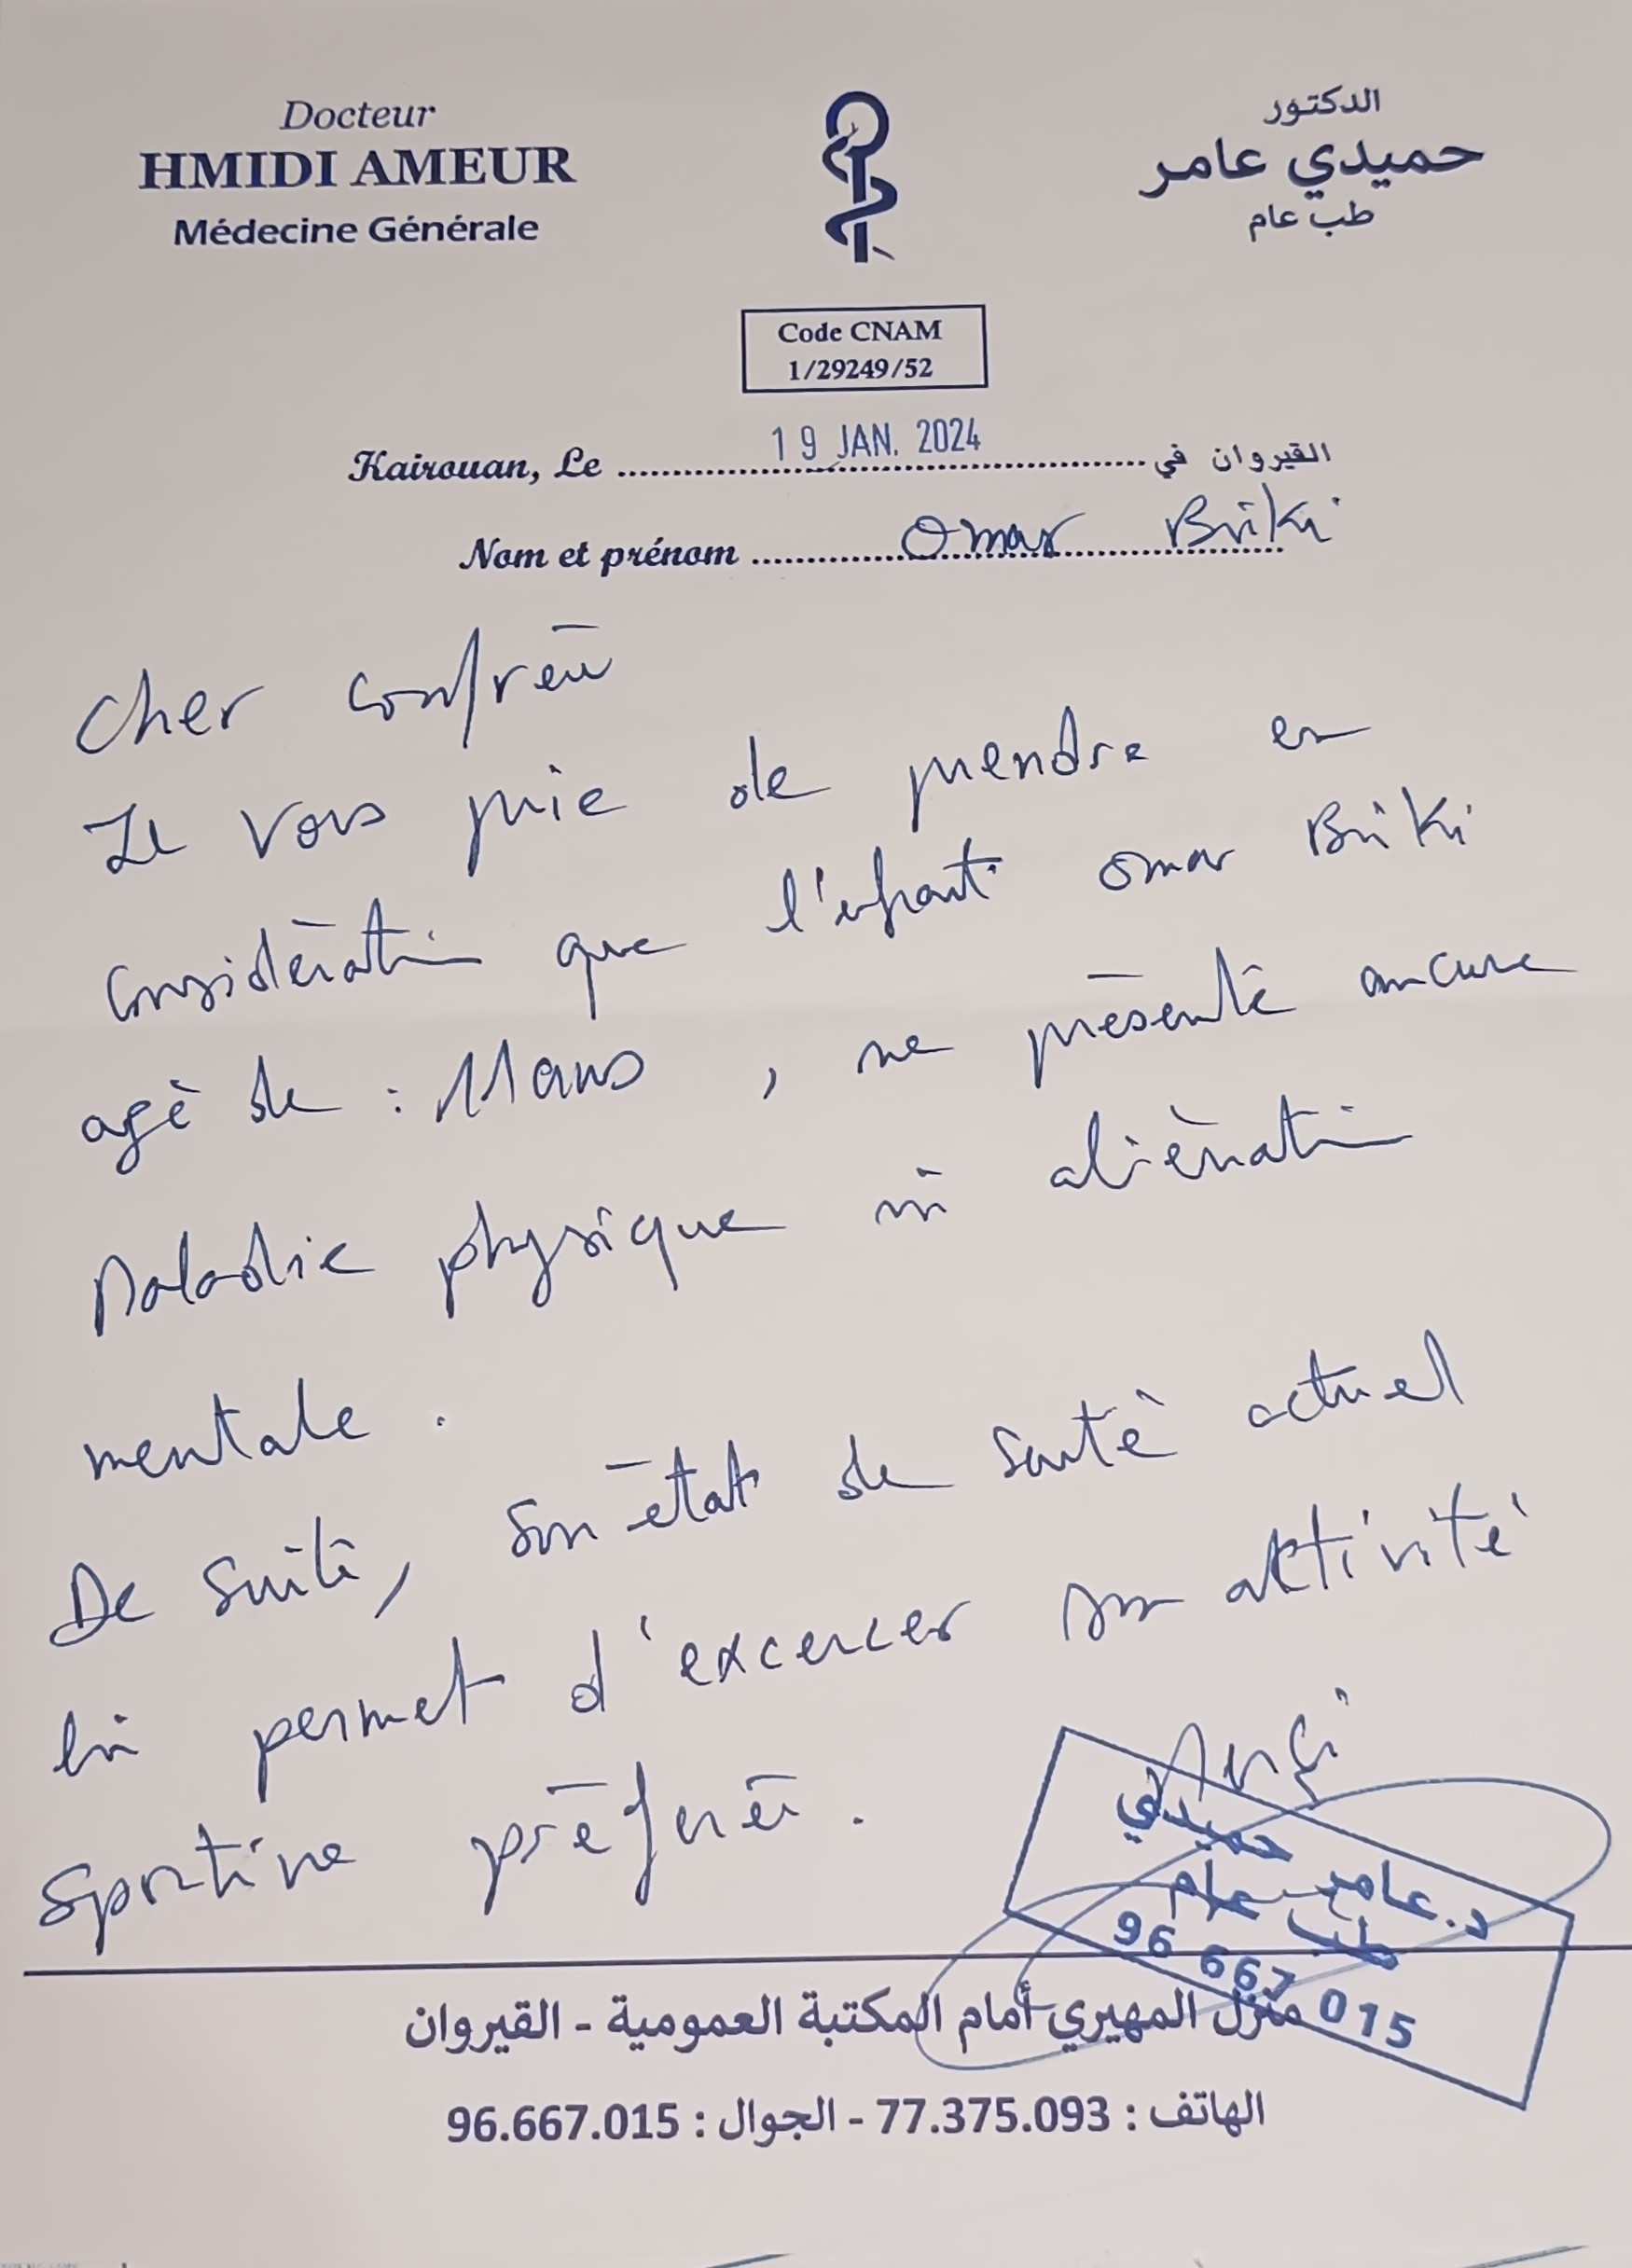 Docteur
HMIDI AMEUR
Médecine Générale
الدكتور
حميدي عامر
طب عام
Code CNAM
1/29249/52
Kairouan, Le 19 JAN. 2024 القيروان في
Nom et prénom Omar Briki
Cher confrère
Je vous prie de prendre en
considération que l'enfant Omar Briki
agé de : 11 ans , ne présente aucune
Maladie physique ni aliénation
mentale .
De suite, son état de santé actuel
lui permet d'excercer son activité
sportive préférée .
د. عامر حميدي
طب عام
96 667 015
منزل المهيري أمام المكتبة العمومية - القيروان
الهاتف : 77.375.093 - الجوال : 96.667.015